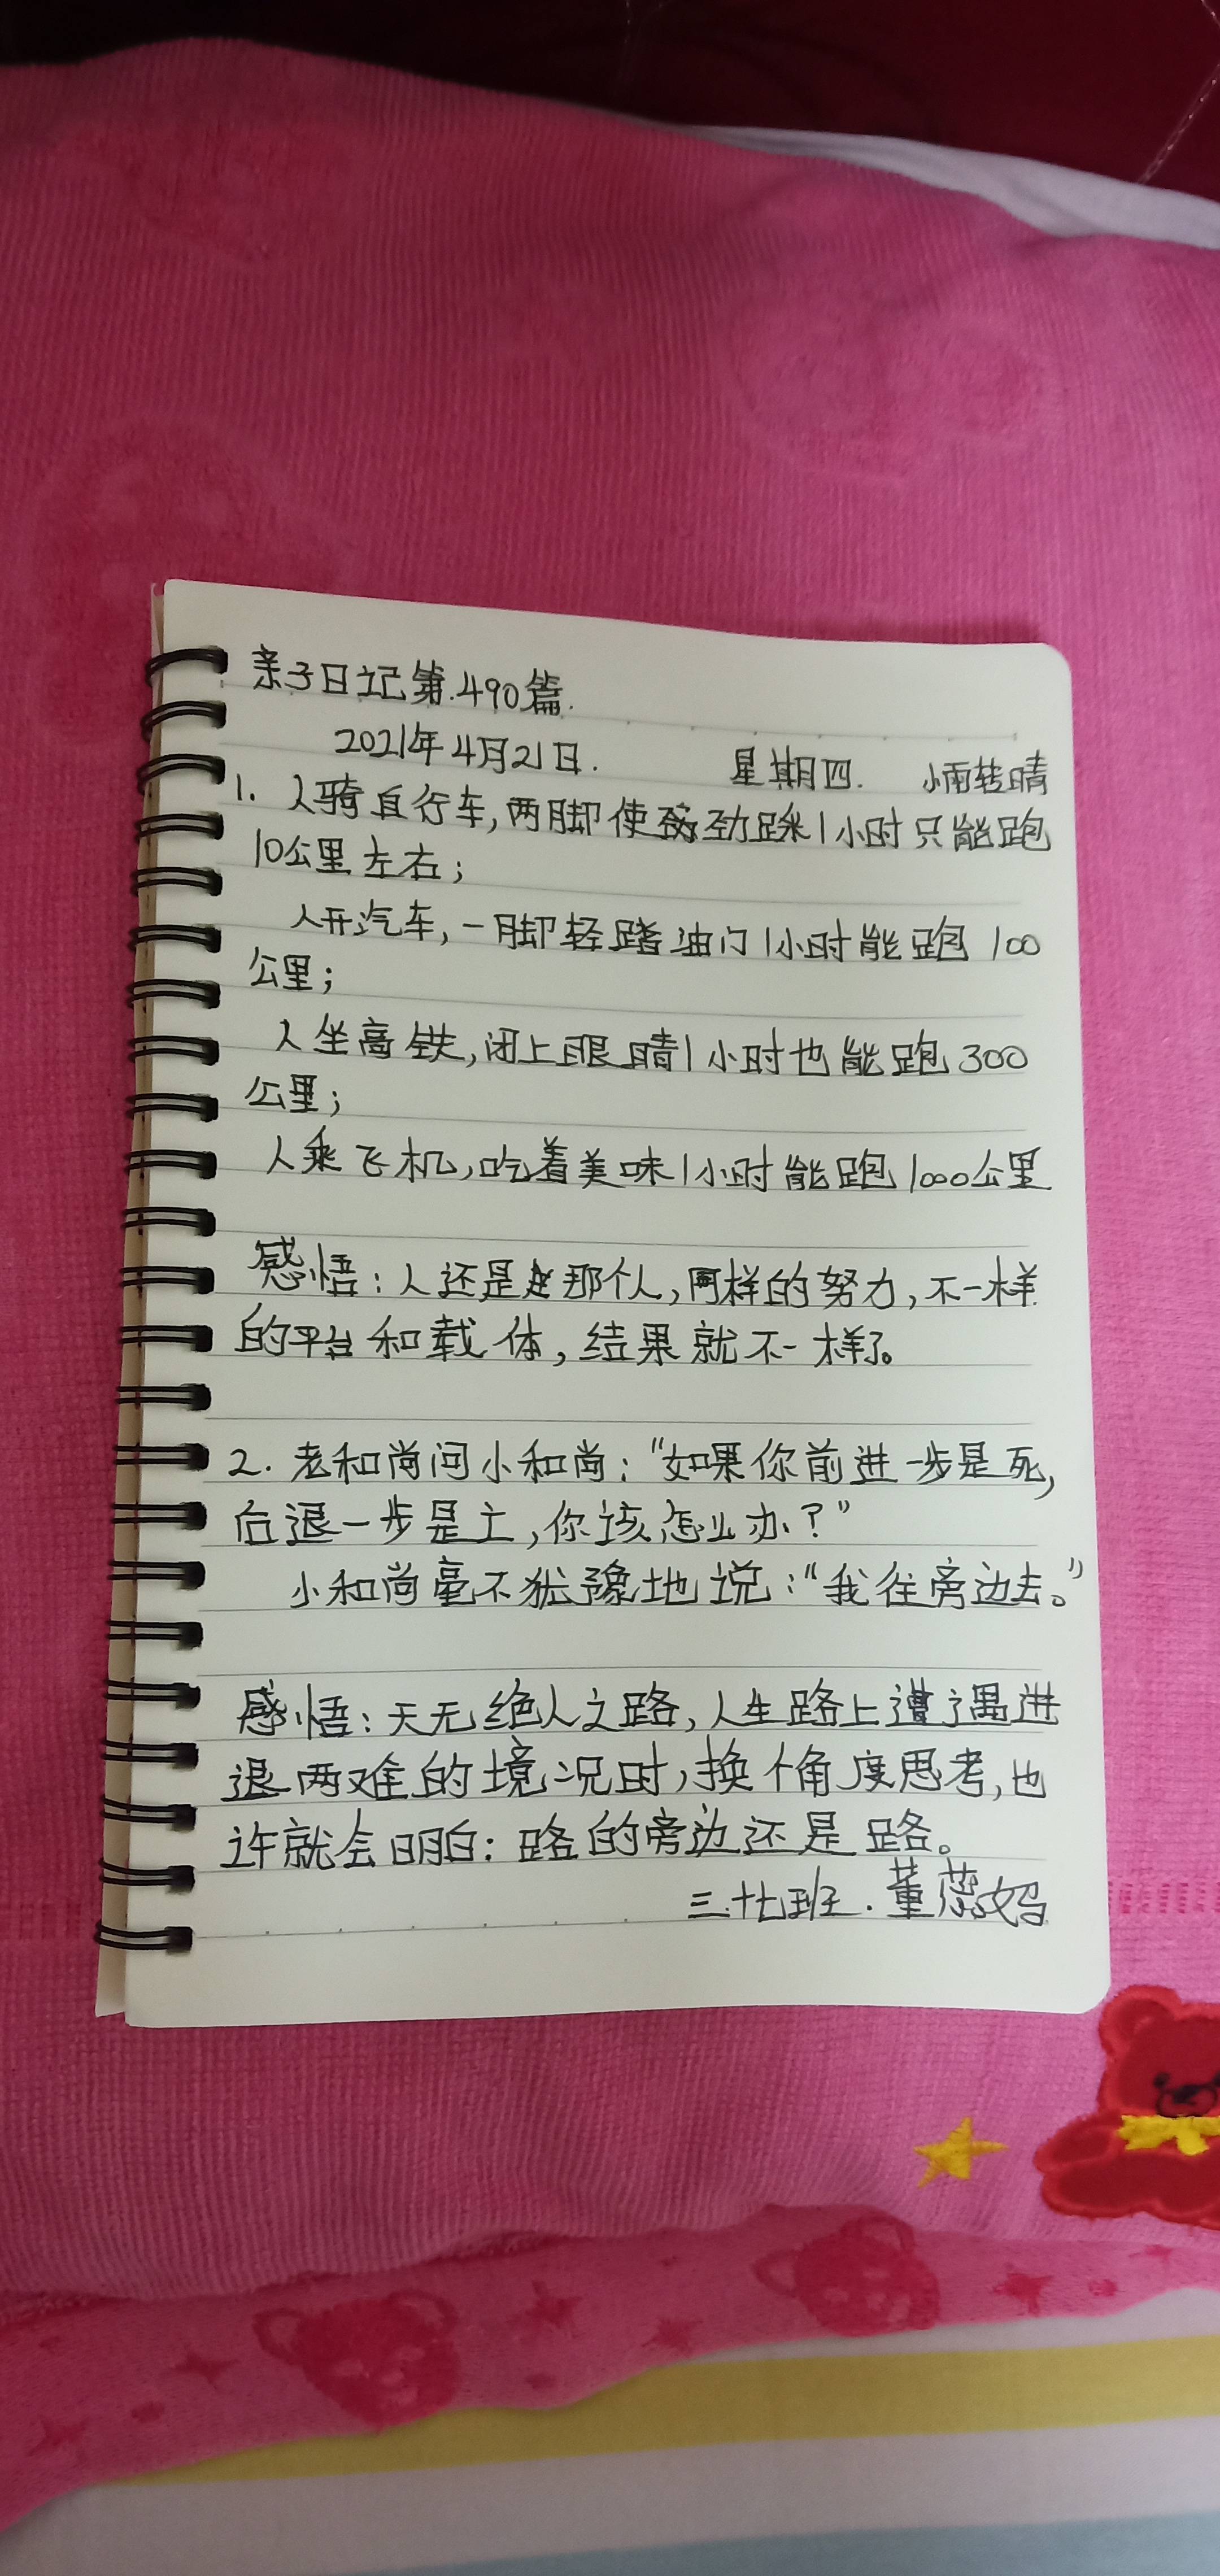 亲子日记第490篇.
2021年4月21日. 星期四. 小雨转晴
1. 人骑自行车,两脚使劲踩1小时只能跑
10公里左右;
人开汽车,一脚轻踏油门1小时能跑100
公里;
人坐高铁,闭上眼睛1小时也能跑300
公里;
人乘飞机,吃着美味1小时能跑1000公里
感悟:人还是那个人,同样的努力,不一样
的平台和载体,结果就不一样了。
2. 老和尚问小和尚:“如果你前进一步是死,
后退一步是亡,你该怎么办?”
小和尚毫不犹豫地说:“我往旁边去。”
感悟:天无绝人之路,人生路上遭遇进
退两难的境况时,换个角度思考,也
许就会明白:路的旁边还是路。
三.十七班.董蕊妈